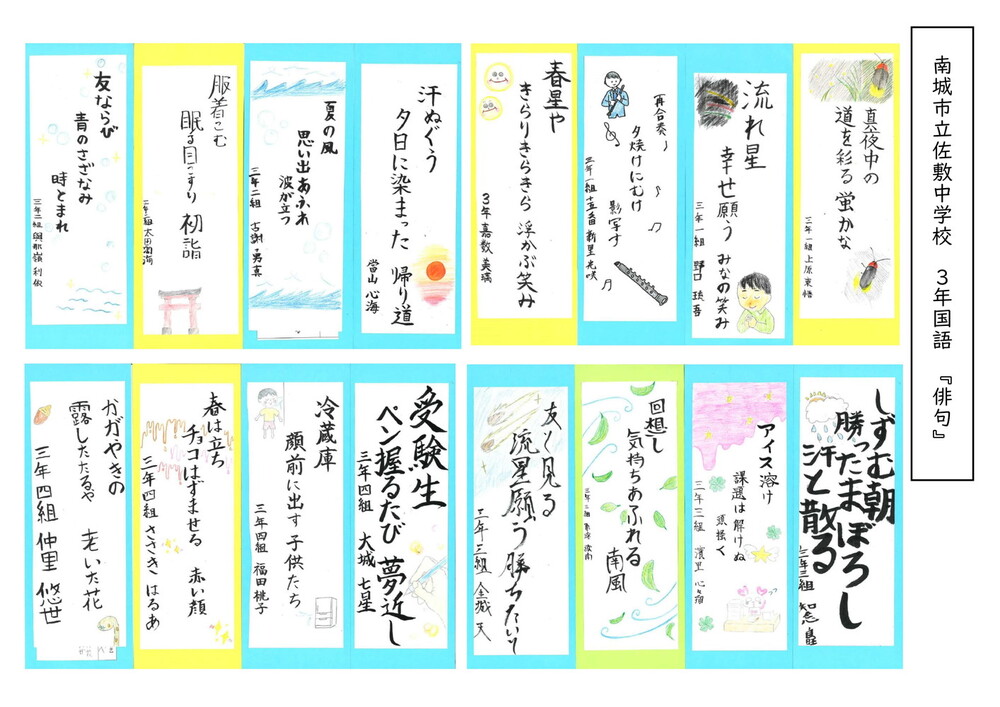 南城市立佐敷中学校 3年国語 『俳句』
真夜中の
道を彩る 蛍かな
三年一組 上原
流れ星
幸せ願う みなの笑み
三年一組 野口
再合奏
夕焼けにむけ
影写す
三年一組
新里
春星や
きらりきらきら 浮かぶ笑み
3年 嘉数 美璃
汗ぬぐう
夕日に染まった 帰り道
當山 心海
夏の風
思い出あふれ
波が立つ
三年二組 古謝
服着こむ
眠る目こすり 初詣
太田
友ならび
青のさざなみ
時とまれ
三年二組 與那嶺
しずむ朝
勝ったまぼろし
汗と散る
三年三組 知念
アイス溶け
課題は解けぬ
頭抱く
三年三組 濱里
回想し
気持ちあふれる
南風
友と見る
流星願う 勝ちたいと
三年三組 金城 天
受験生
ペン握るたび 夢近し
三年四組 大城 七星
冷蔵庫
顔前に出す 子供たち
三年四組 福田 桃子
春は立ち
チョコはずませる 赤い顔
三年四組 ささき はるあ
かがやきの
露したたるや 老いた花
三年四組 仲里 悠世